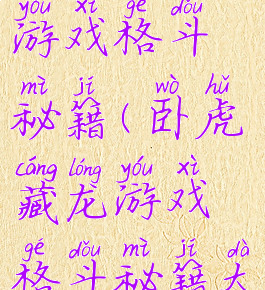 yóu xì gé dòu
游戏格斗
mì jí wò hǔ
秘籍(卧虎
cáng lóng yóu xì
藏龙游戏
gé dǒu mì jí dà
格斗秘籍大